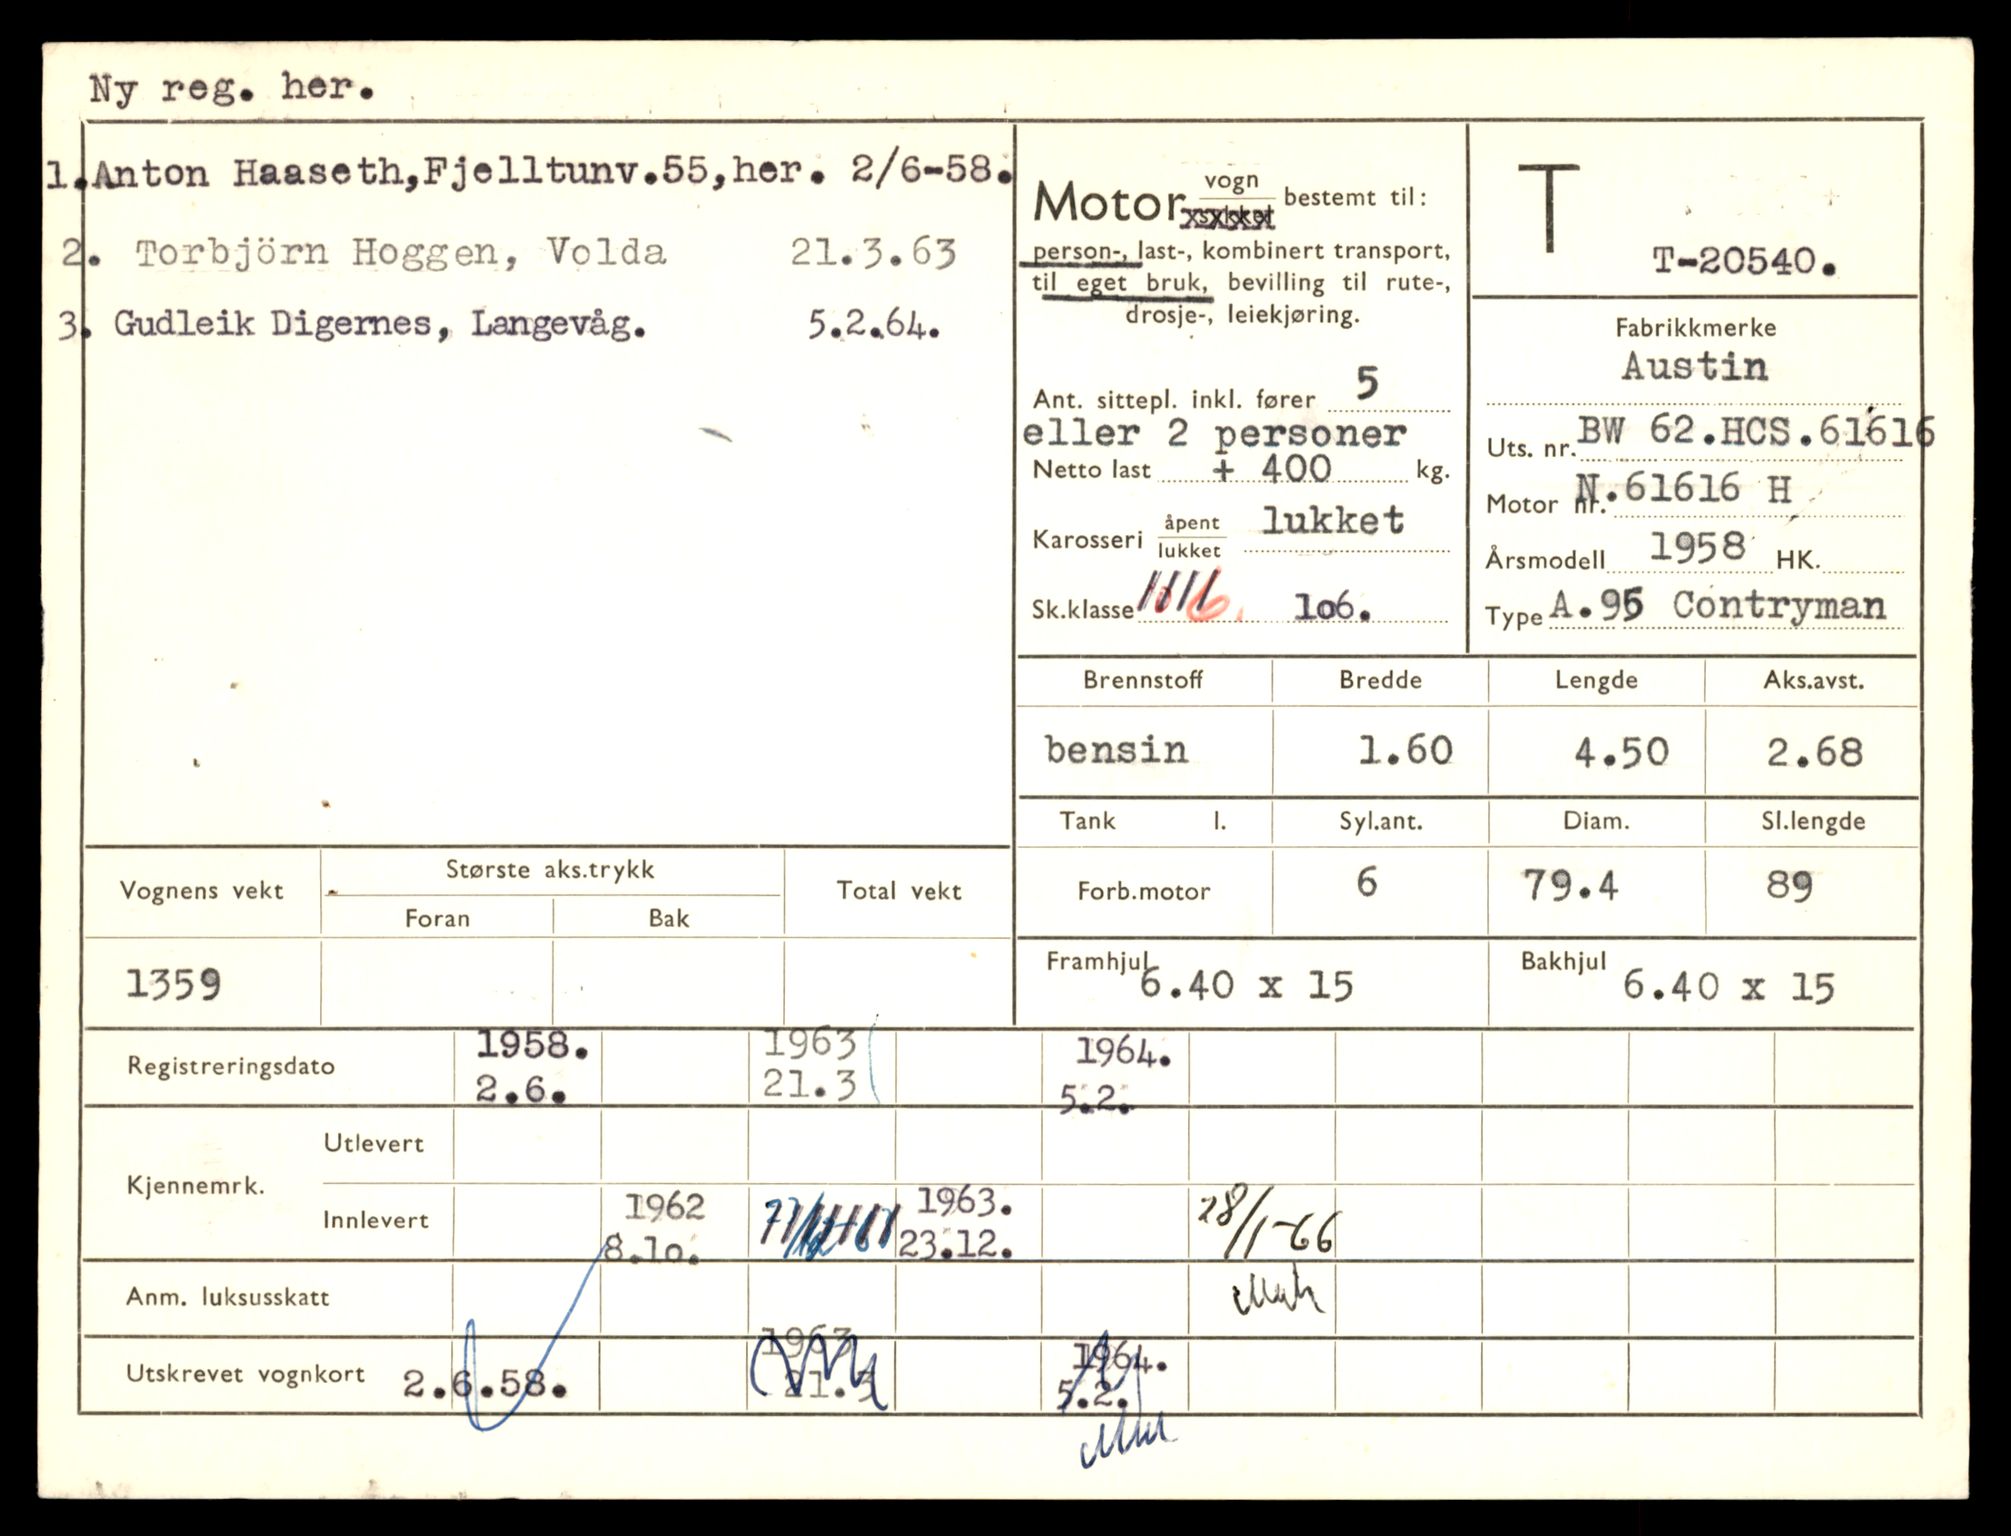 Ny reg. her.
1.Anton Haaseth,Fjelltunv.55,her. 2/6-58.
2. Torbjörn Hoggen, Volda 21.3.63
3. Gudleik Digernes, Langevåg. 5.2.64.
Motor vogn bestemt til:
person-, last-, kombinert transport,
til eget bruk, bevilling til rute-,
drosje-, leiekjøring.
Ant. sittepl. inkl. fører 5
eller 2 personer
Netto last + 400 kg.
Karosseri åpent lukket lukket
Sk.klasse 1o6.
T
T-20540.
Fabrikkmerke
Austin
Uts. nr. BW 62.HCS.61616
Motor nr. N.61616 H
Årsmodell 1958 HK.
Type A.95 Contryman
Brennstoff Bredde Lengde Aks.avst.
bensin 1.60 4.50 2.68
Tank l. Syl.ant. Diam. Sl.lengde
Forb.motor 6 79.4 89
Framhjul 6.40 x 15 Bakhjul 6.40 x 15
Vognens vekt Største aks.trykk Total vekt
Foran Bak
1359
Registreringsdato 1958. 1963 1964.
2.6. 21.3 5.2.
Kjennemrk. Utlevert
Innlevert 1962 1963. 28/1-66
8.1o. 23.12.
Anm. luksusskatt
Utskrevet vognkort 2.6.58. 1963 1964.
21.3 5.2.